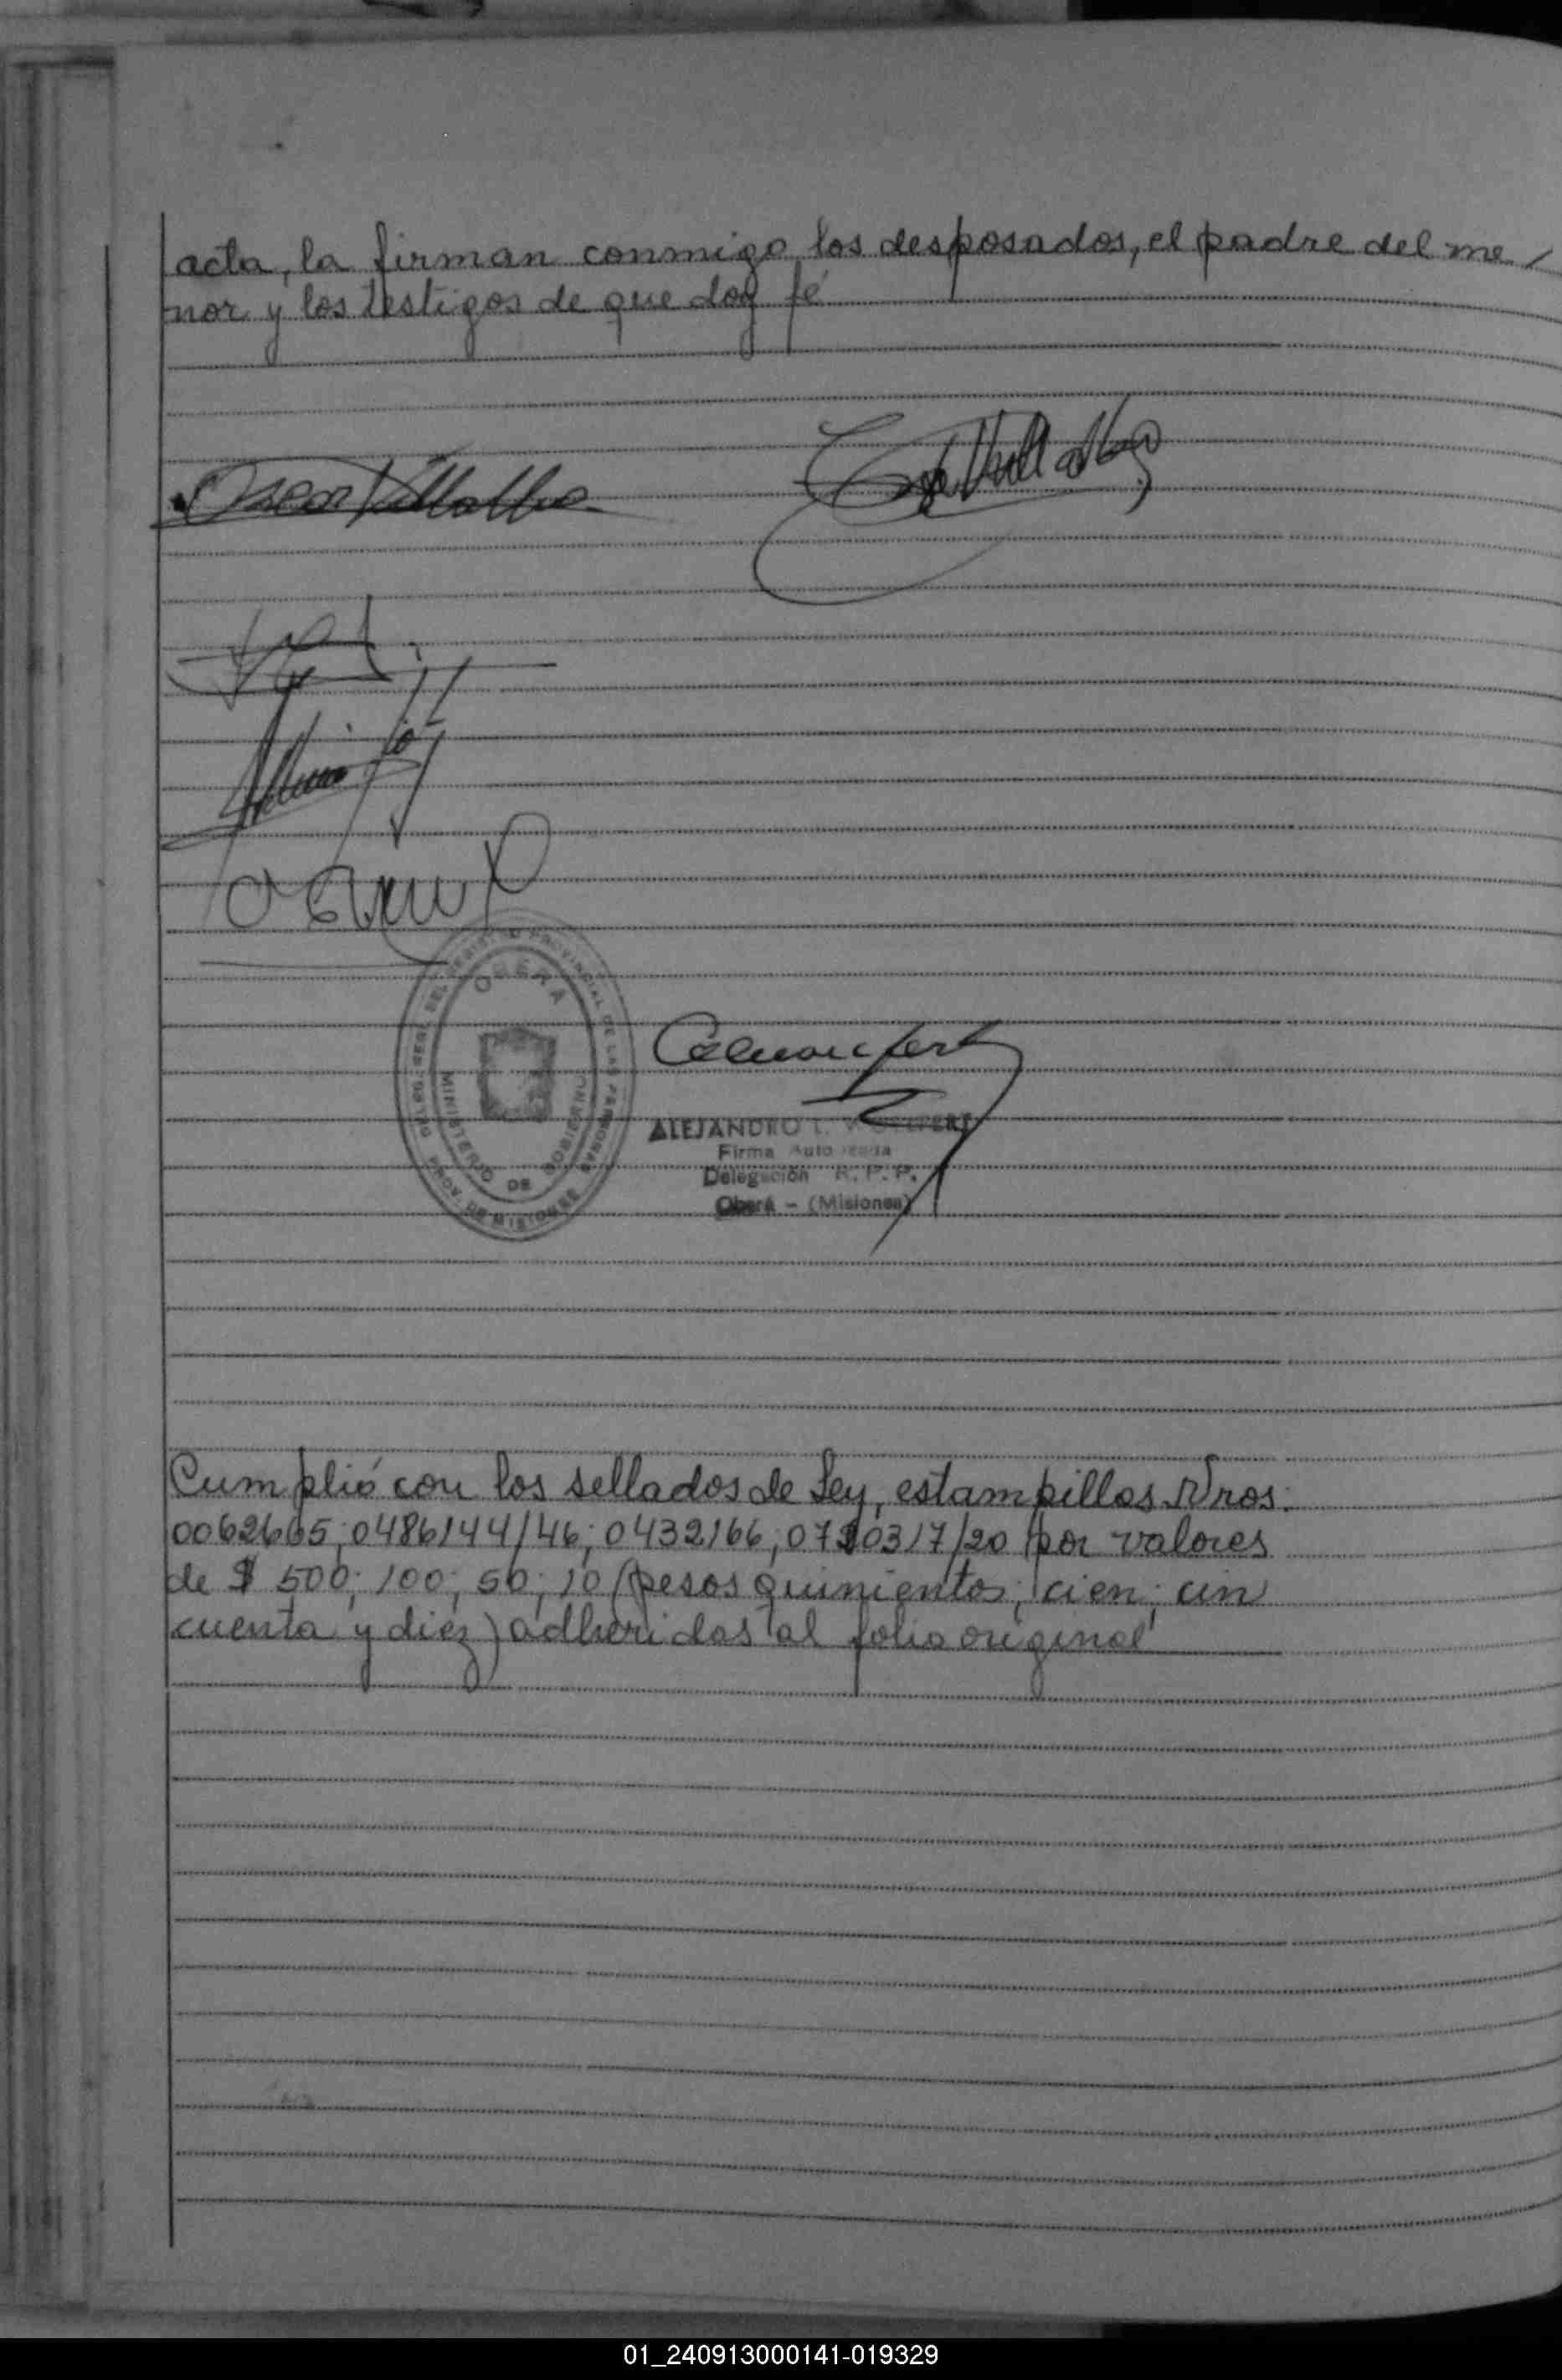 acta, la firman conmigo los desposados, el padre del me/
nor y los testigos de que doy fé
Oscar Villalba
OBERA
MINISTERIO DE GOBIERNO
PROV. DE MISIONES
ALEJANDRO L.
Firma Autorizada
Delegación R. P. P.
Oberá - (Misiones)
Cumplió con los sellados de Ley, estampillas Nros:
0062665; 0486144/46; 0432166; 0710317/20 por valores
de $ 500; 100; 50; 10 (pesos quinientos; cien; cin
cuenta y diez) adheridas al folio original
01_240913000141-019329